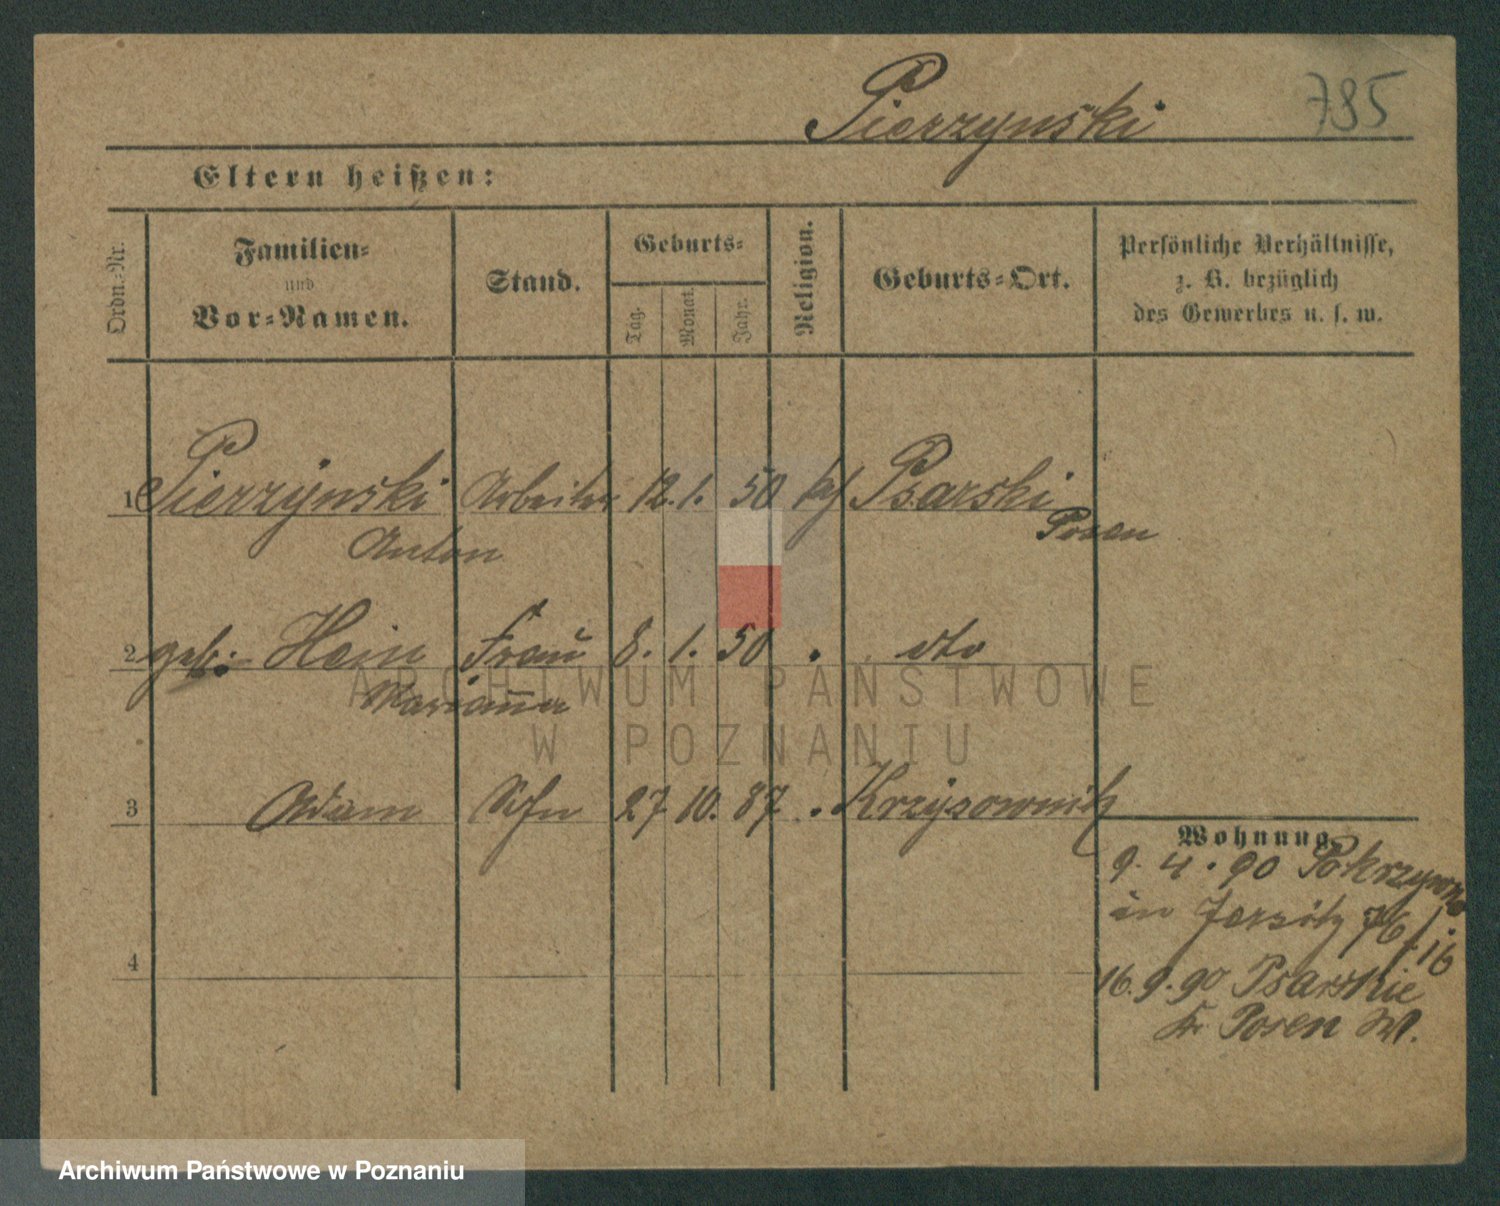 Pierzynski 785
Eltern heißen:
Ordn.-Nr. Familien- und Vor-Namen. Stand. Geburts- Tag. Monat. Jahr. Religion. Geburts-Ort. Persönliche Verhältnisse, z. B. bezüglich des Gewerbes u. s. w.
1 Pierzynski Arbeiter 12. 1. 50 kth Psarski
Anton Posen
2 geb. Hein Frau 8. 1. 50 dto
Marianna
3 Adam Sohn 27 10. 87
Wohnung
9. 4. 90
in Jersitz 76/16
4
16. 9. 90 Psarskie
Kr Posen W.
ARCHIWUM PAŃSTWOWE
W POZNANIU
Archiwum Państwowe w Poznaniu